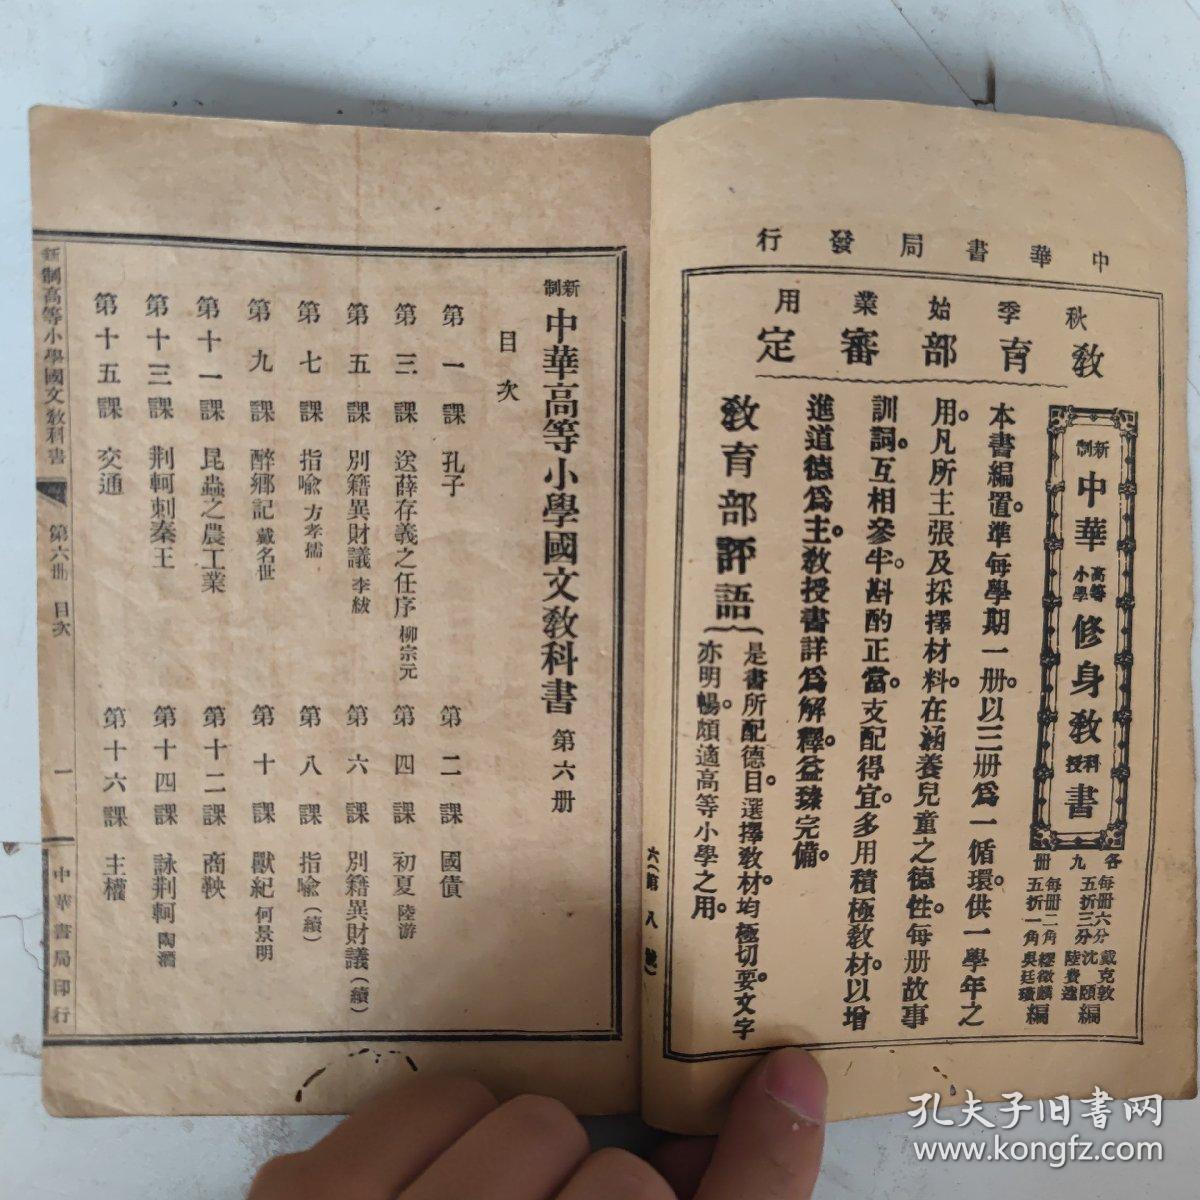 中華書局發行
秋季始業用
教育部審定
新制中華高等小學修身教科書教授書
各九册
每册六分 五折三分 戴克敦 沈頤 陸費逵 編
每册二角 五折一角 繆徵麟 吳廷璜 編
本書編置。準每學期一册。以三册爲一循環。供一學年之
用。凡所主張及採擇材料。在涵養兒童之德性。每册故事
訓詞。互相參半。斟酌正當。支配得宜。多用積極教材。以增
進道德爲主。教授書詳爲解釋。益臻完備。
教育部評語
是書所配德目。選擇教材。均極切要。文字
亦明暢。頗適高等小學之用。
六(第八號)
新制中華高等小學國文教科書 第六册
目次
第一課 孔子
第二課 國債
第三課 送薛存義之任序 柳宗元
第四課 初夏 陸游
第五課 別籍異財議 李紱
第六課 別籍異財議(續)
第七課 指喻 方孝孺
第八課 指喻(續)
第九課 醉鄉記 戴名世
第十課 獸紀 何景明
第十一課 昆蟲之農工業
第十二課 商鞅
第十三課 荆軻刺秦王
第十四課 詠荆軻 陶潛
第十五課 交通
第十六課 主權
新制高等小學國文教科書 第六册 目次 一 中華書局印行
孔夫子旧书网
www.kongfz.com